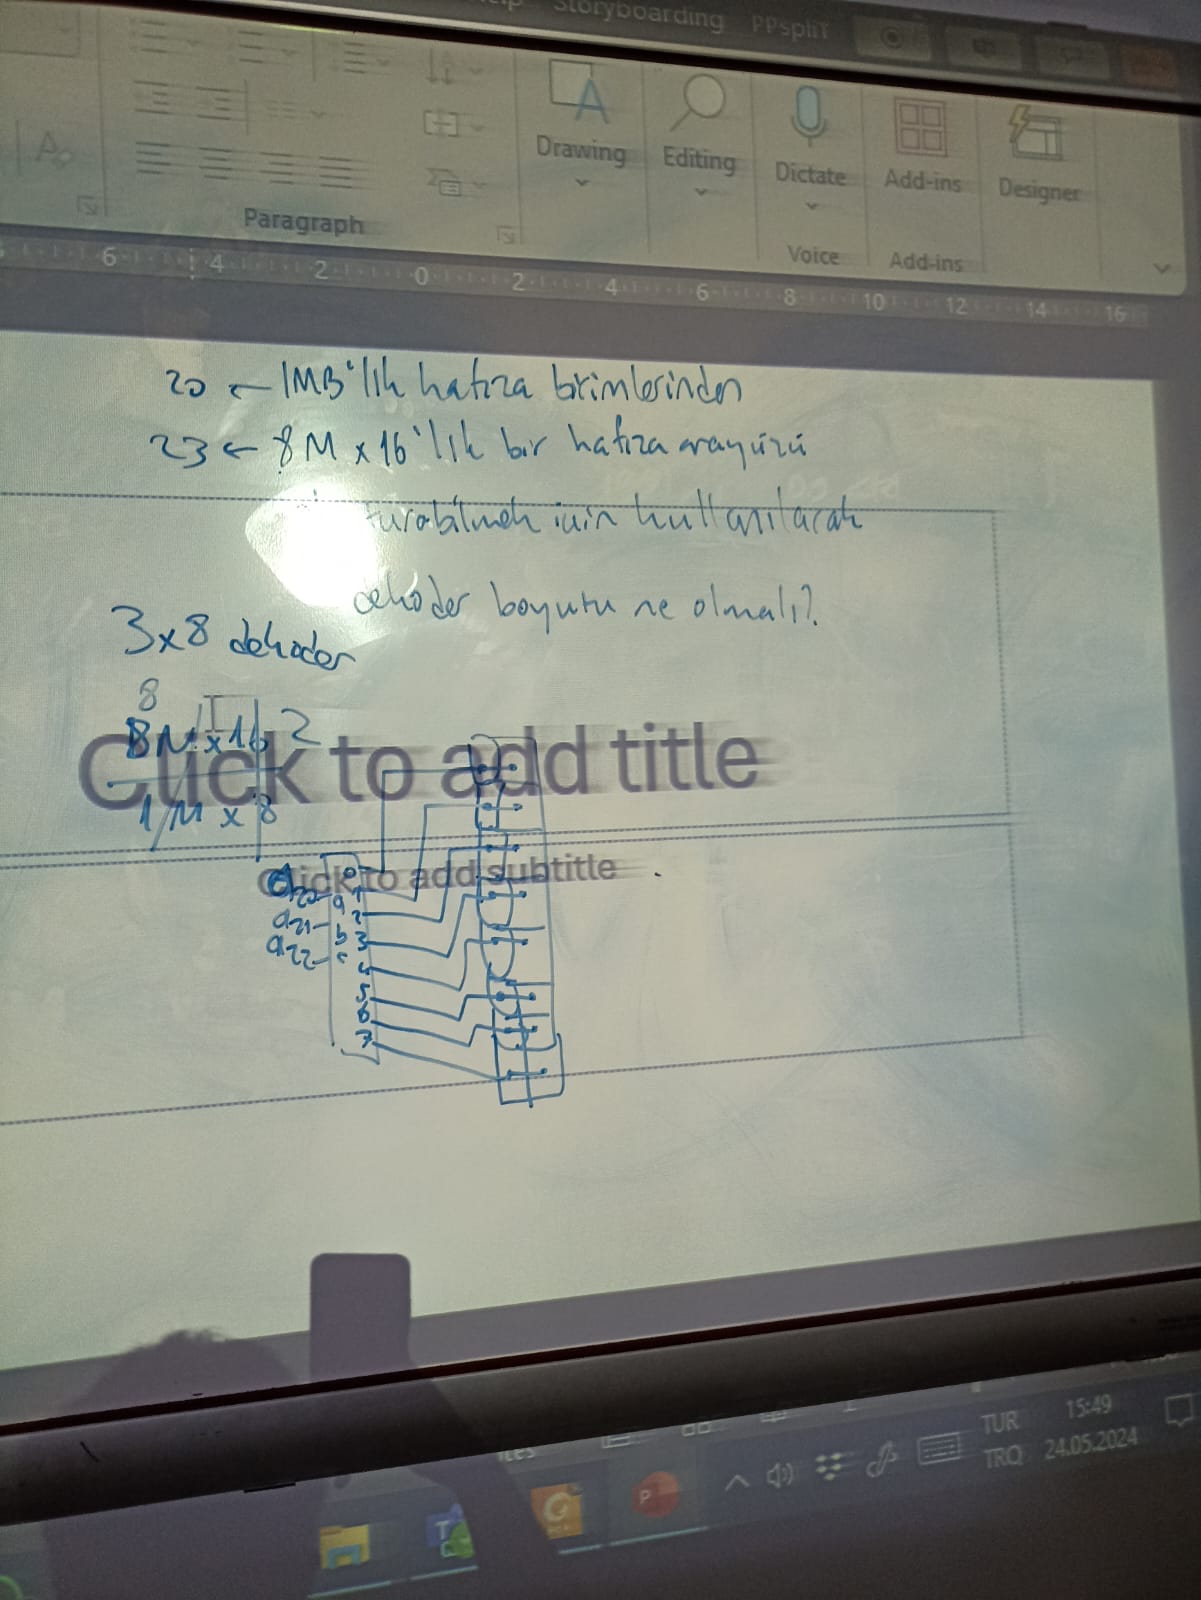 Storyboarding PPspliT
Drawing
Editing
Dictate
Add-ins
Designer
Paragraph
Voice
Add-ins
6 4 2 0 2 4 6 8 10 12 14 16
20 ← 1MB'lık hafıza birimlerinden
23 ← 8M x 16'lık bir hafıza arayüzü
için kullanılacak
dekoder boyutu ne olmalı?
3x8 dekoder
8
8M x 16 2
1M x 8
Click to add title
Click to add subtitle
a20 a 0
a21 b 1
a22 c 2
3
4
5
6
7
TUR 15:49
TRQ 24.05.2024